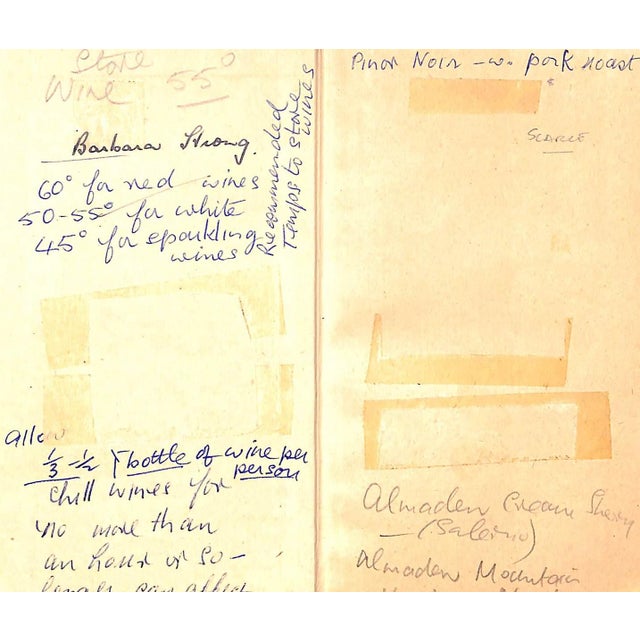 Store
Wine 55°
Barbara Strong.
60° for red wines
50-55° for white
45° for sparkling
wines
Recommended
Temps to store
wines
Allow
1/3 - 1/2 bottle of wine per
person
Chill wines for
no more than
an hour or so -
longer can affect
Pinot Noir - w. pork roast
SCARCE
Almaden Cream Sherry
- (Salerno)
Almaden Mountain